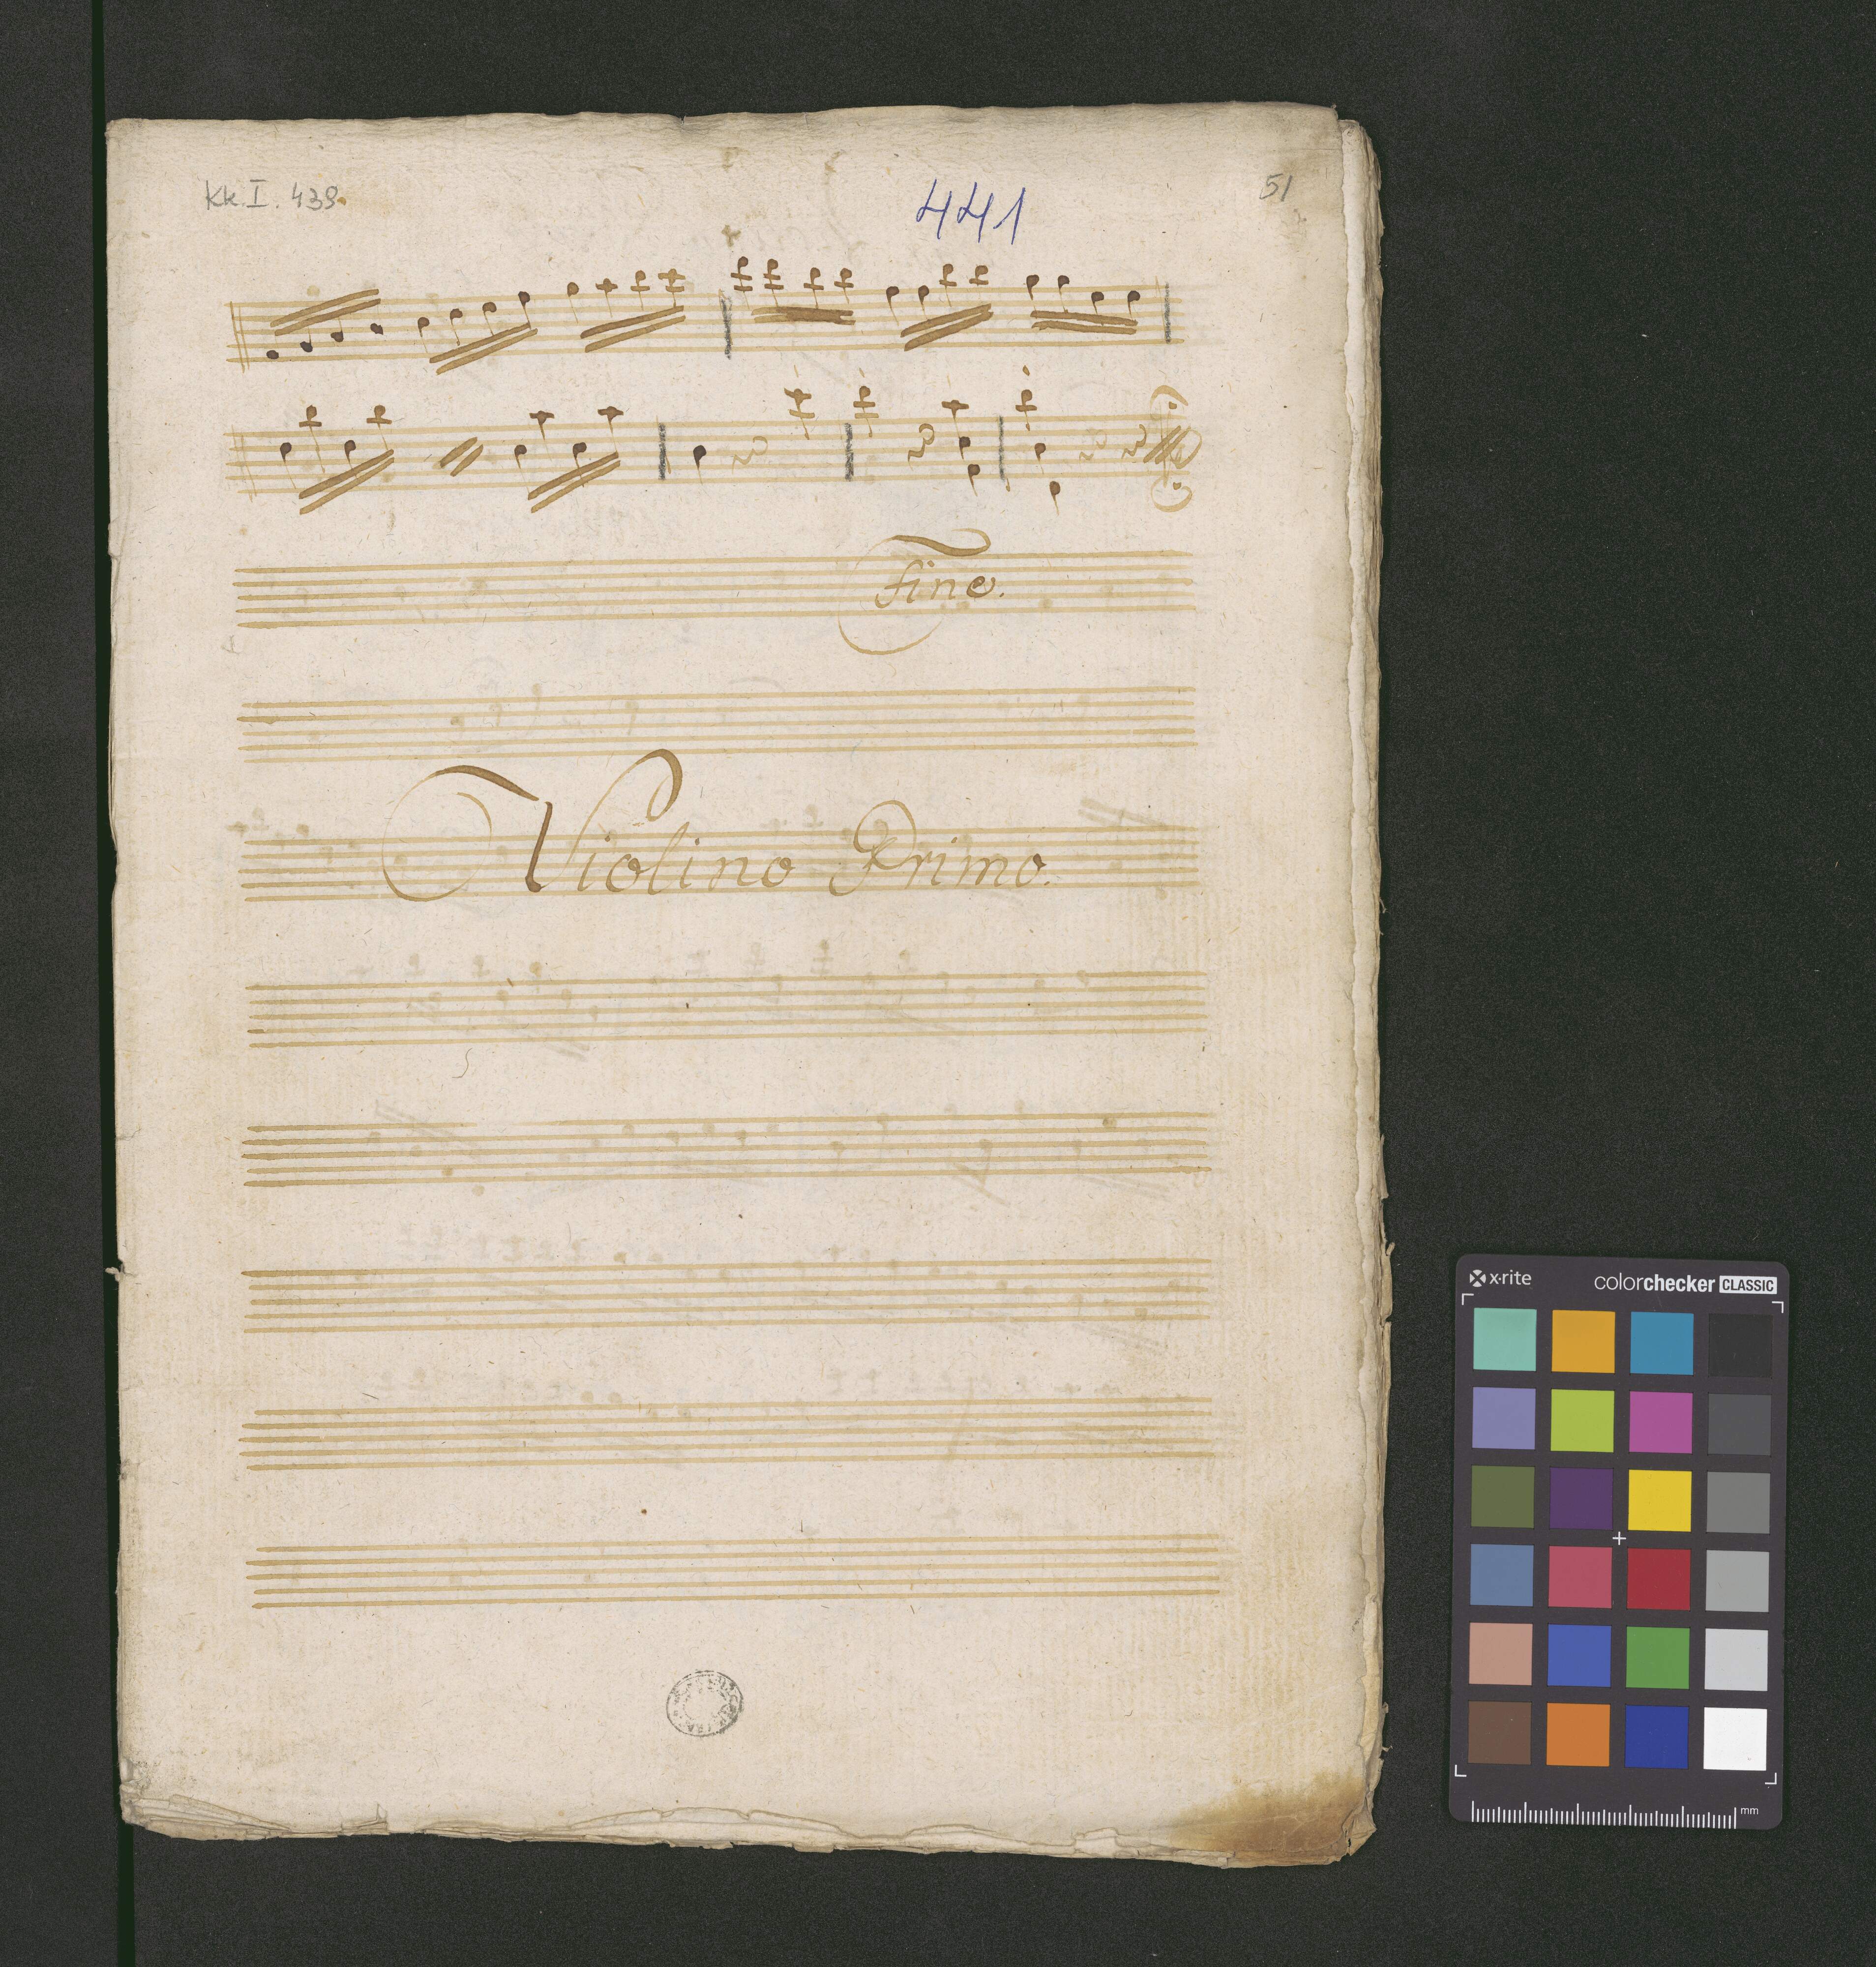 Kk. I. 439.
441
51
fine.
Violino Primo.
x·rite
colorchecker CLASSIC
mm